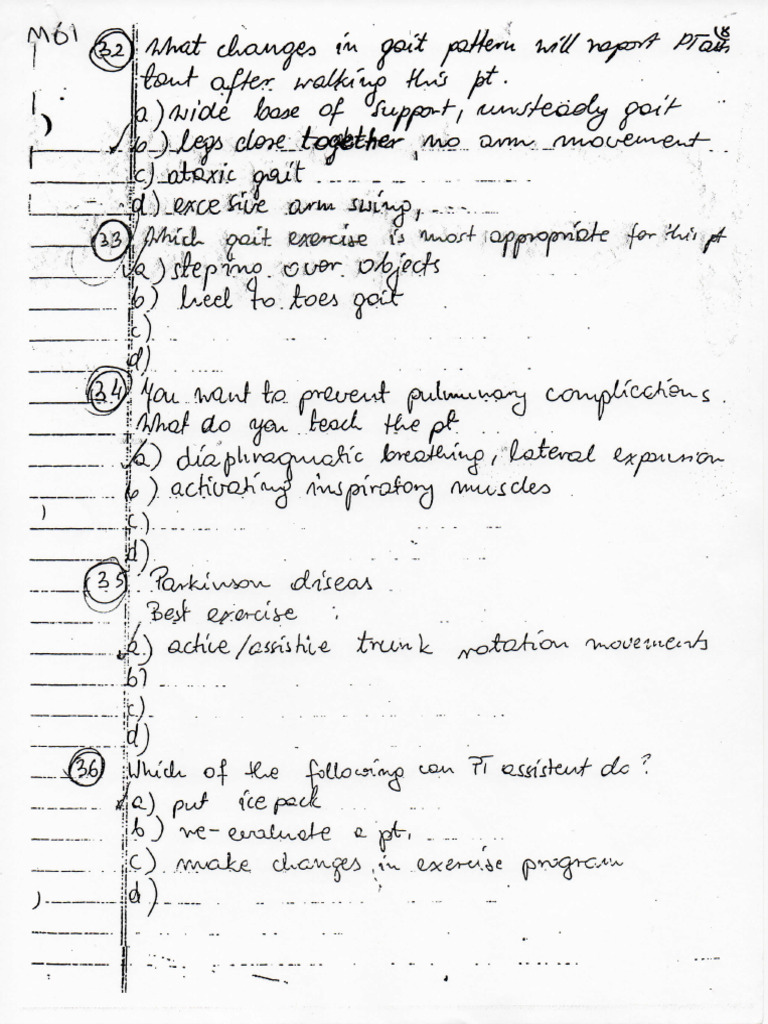 M61
32 What changes in gait pattern will report PT assis
tant after walking this pt.
a) wide base of support, unsteady gait
b) legs close together, no arm movement
c) ataxic gait
d) excesive arm swing,
33 Which gait exercise is most appropriate for this pt
a) steping over objects
b) heel to toes gait
c)
d)
34 You want to prevent pulmunary complications.
What do you teach the pt
a) diaphragmatic breathing, lateral expansion
b) activating inspiratory muscles
c)
d)
35 Parkinson diseas
Best exercise :
a) active/assistive trunk rotation movements
b)
c)
d)
36 Which of the following can PT assistent do?
a) put ice pack
b) re-evaluate a pt.
c) make changes in exercise program
d)